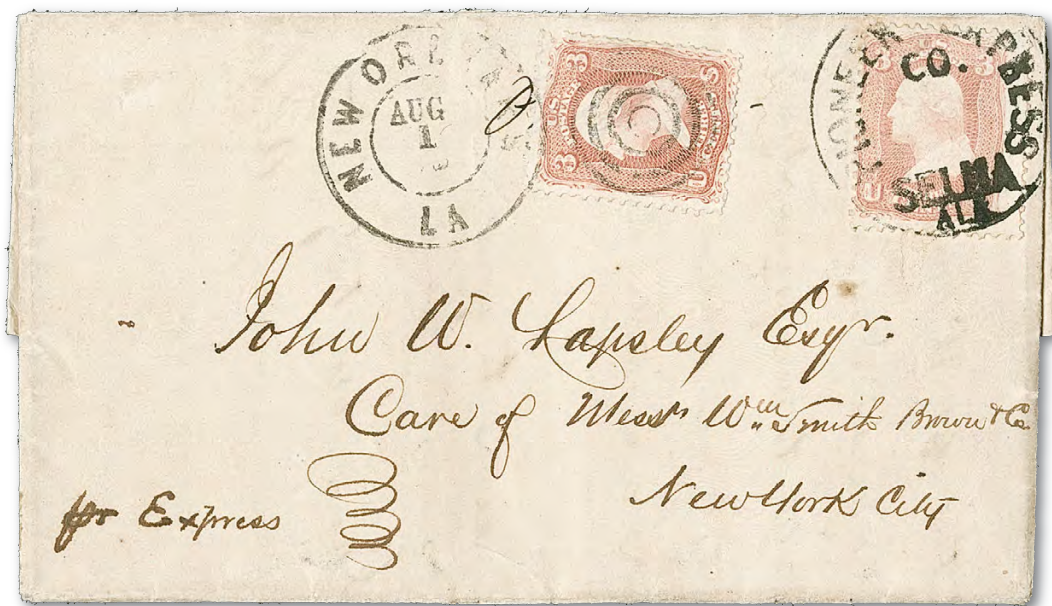 NEW ORLEANS
AUG
LA
3 3
U.S. POSTAGE
PIONEER EXPRESS
CO.
SELMA
ALA
John W. Lapsley Esqr.
Care of Messrs Wm Smith Brown & Co
New York City
pr Express